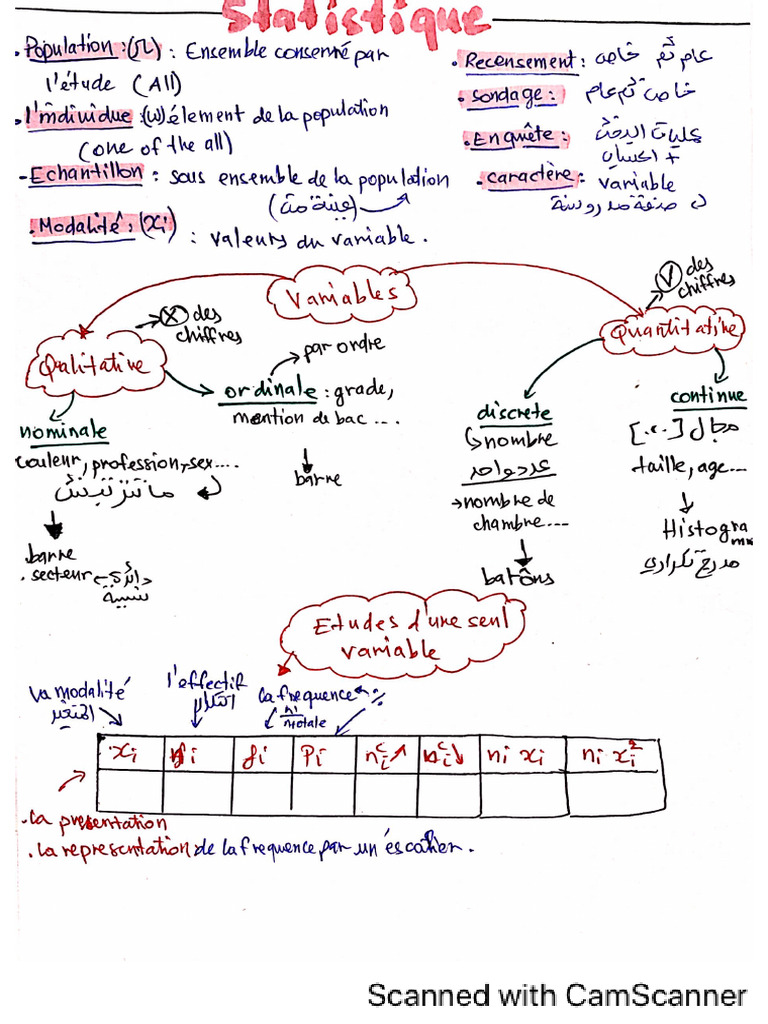 Statistique
. Population : (Ω) : Ensemble conserné par
l'étude (All)
. l'individue : (ω) élement de la population
(one of the all)
- Echantillon : sous ensemble de la population
(عينة من)
. Modalité : (xi)
: valeurs du variable .
. Recensement : عام ثم خاص
. Sondage : خاص ثم عام
. Enquête : عمليات البحث
+
. caractère : variable
صفة مدروسة
Variables
Qalitative
(X) des
chiffres
Quantitative
(V) des
chiffres
nominale
couleur, profession, sex....
ما تترتبش
barre
. secteur دائرة
نسبية
par ordre
ordinale : grade,
mention de bac ....
barre
discrete
nombre
عدد واحد
nombre de
chambre....
batôns
continue
[..,..] مجال
taille, age...
Histogra
mme
مدرج تكراري
Etudes d'une seul
variable
la modalité
المتغير
l'effectif
التكرار
la frequence %
ni
ntotale
xi ni fi Pi nic↗ nic↓ ni xi ni xi²
. la presentation
. la representation de la frequence par un éscalier .
Scanned with CamScanner